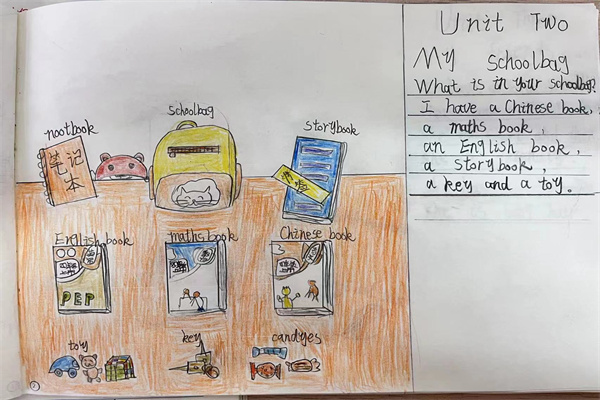 Unit Two
My schoolbag
What is in your schoolbag?
I have a Chinese book,
a maths book,
an English book,
a storybook,
a key and a toy。
schoolbag
nootbook
storybook
笔记
本
English book
maths book
Chinese book
PEP
toy
key
candyes